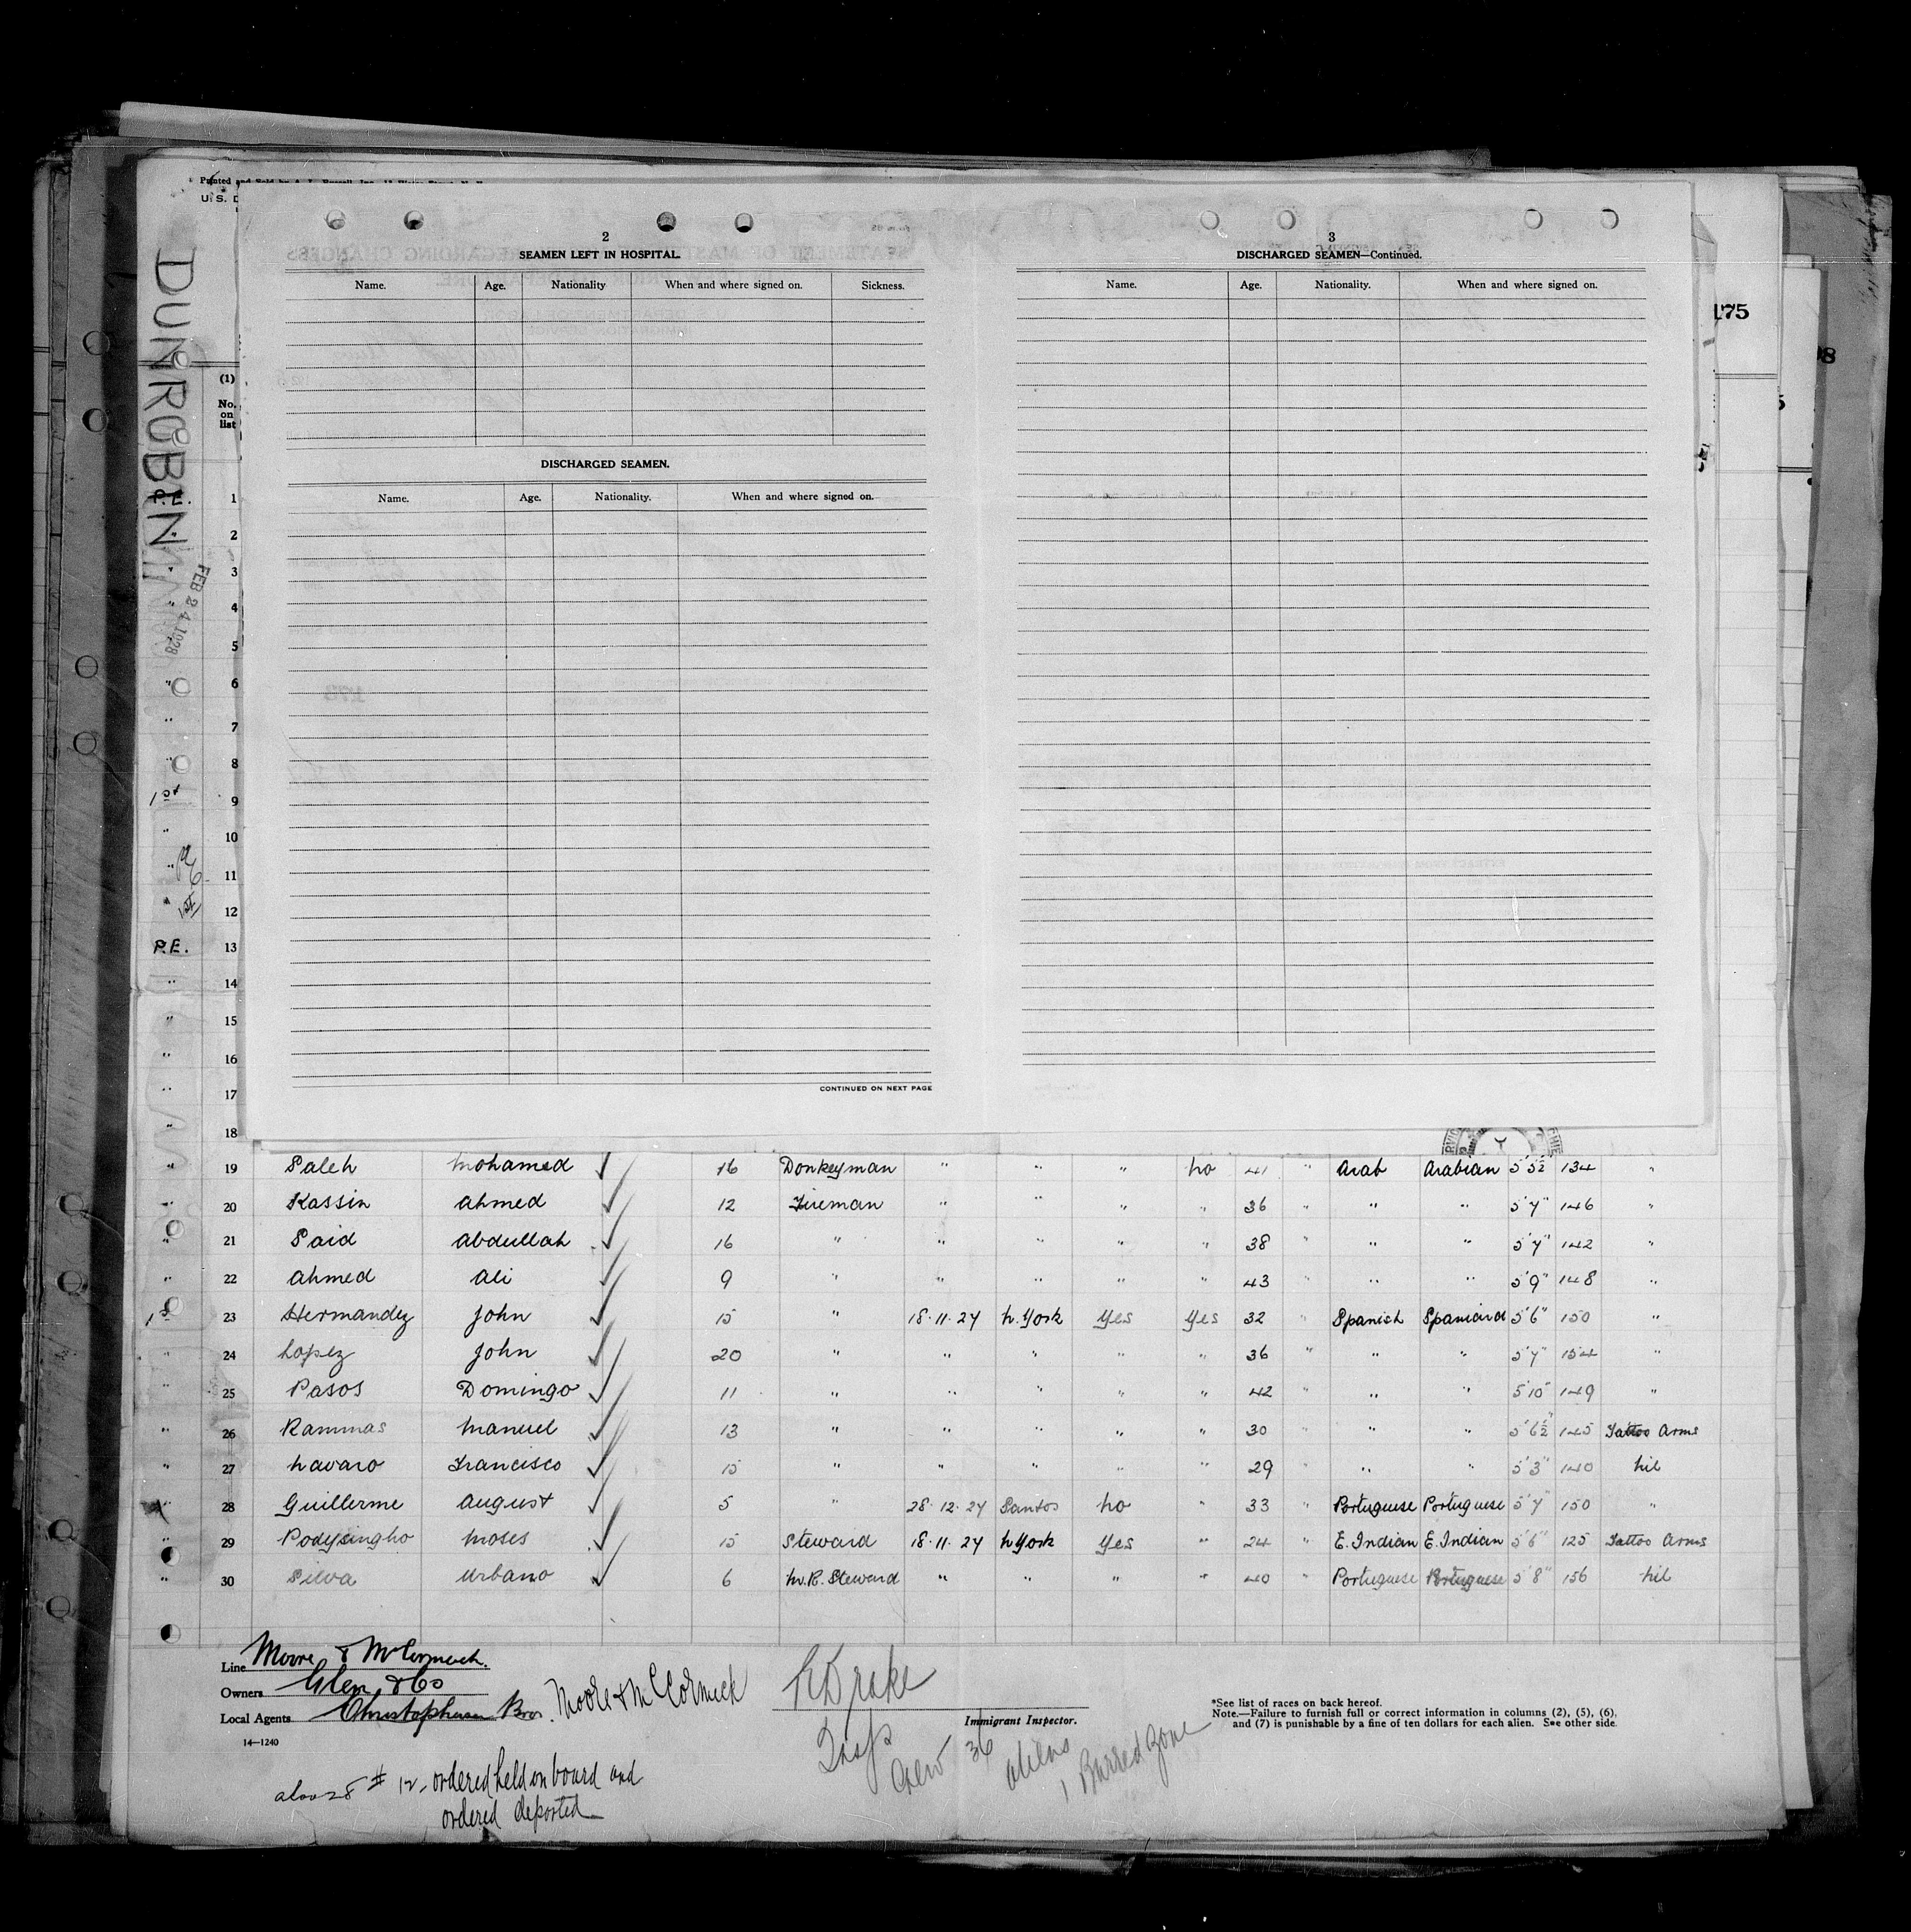 Printed and Sold by
U. S. D
DUNROBEN
FEB 24 1928
(1)
No. on list
2
SEAMEN LEFT IN HOSPITAL.
Name. Age. Nationality When and where signed on. Sickness.
DISCHARGED SEAMEN.
Name. Age. Nationality. When and where signed on.
CONTINUED ON NEXT PAGE
3
DISCHARGED SEAMEN—Continued.
Name. Age. Nationality. When and where signed on.
175
P.E. 1
2
" 3
" 4
5
" 6
" 7
" 8
1st 9
" 10
" 11
" 12
P.E. 13
" 14
" 15
" 16
" 17
" 18
" 19 Saleh Mohamed ✓ 16 Donkeyman " " " No 41 " Arab Arabian 5'5½ 134 "
" 20 Kassin Ahmed ✓ 12 Fireman " " " " 36 " " " 5'7" 146 "
" 21 Said Abdullah ✓ 16 " " " " " 38 " " " 5'7" 142 "
" 22 Ahmed Ali ✓ 9 " " " " " 43 " " " 5'9" 148 "
1st 23 Hermandez John ✓ 15 " 18.11.27 N.York Yes Yes 32 " Spanish Spaniard 5'6" 150 "
" 24 Lopez John ✓ 20 " " " " " 36 " " " 5'7" 154 "
" 25 Pasos Domingo ✓ 11 " " " " " 42 " " " 5'10" 149 "
" 26 Rammas Manuel ✓ 13 " " " " " 30 " " " 5'6½" 145 Tattoo Arms
" 27 Navaro Francisco ✓ 15 " " " " " 29 " " " 5'3" 140 Nil
" 28 Guillerme August ✓ 5 " 28.12.27 Santos No " 33 " Portuguese Portuguese 5'7" 150 "
" 29 Podysingho Moses ✓ 15 Steward 18.11.27 N York Yes " 24 " E. Indian E. Indian 5'6" 125 Tattoo Arms
" 30 Silva Urbano ✓ 6 M.R. Steward " " " " 40 " Portuguese Portuguese 5'8" 156 Nil
Line Moore & McCormack.
Owners Glen & Co
Local Agents Christopherson Bros. Moore & McCormick
14—1240
Drake
Immigrant Inspector.
Insp
Crew 36 aliens
1 Barred Zone
*See list of races on back hereof.
Note.—Failure to furnish full or correct information in columns (2), (5), (6),
and (7) is punishable by a fine of ten dollars for each alien. See other side.
also 28 # 12, ordered held on board and
ordered deported